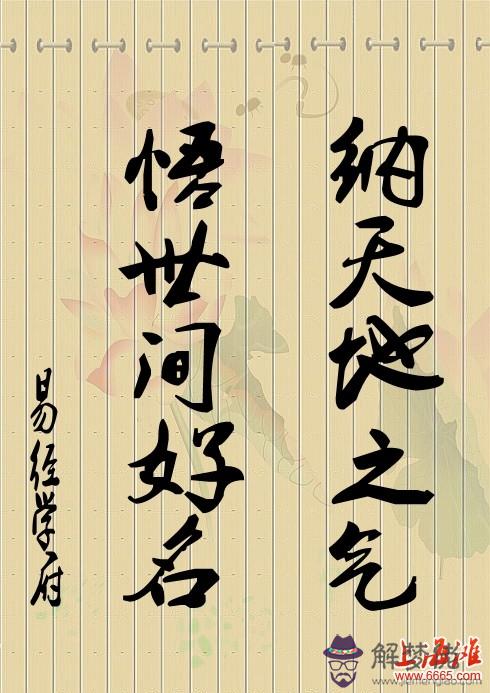 纳天地之气
悟世间好名
易经学府
解梦佬
www.jiemenglao.com
上海滩
www.6665.com